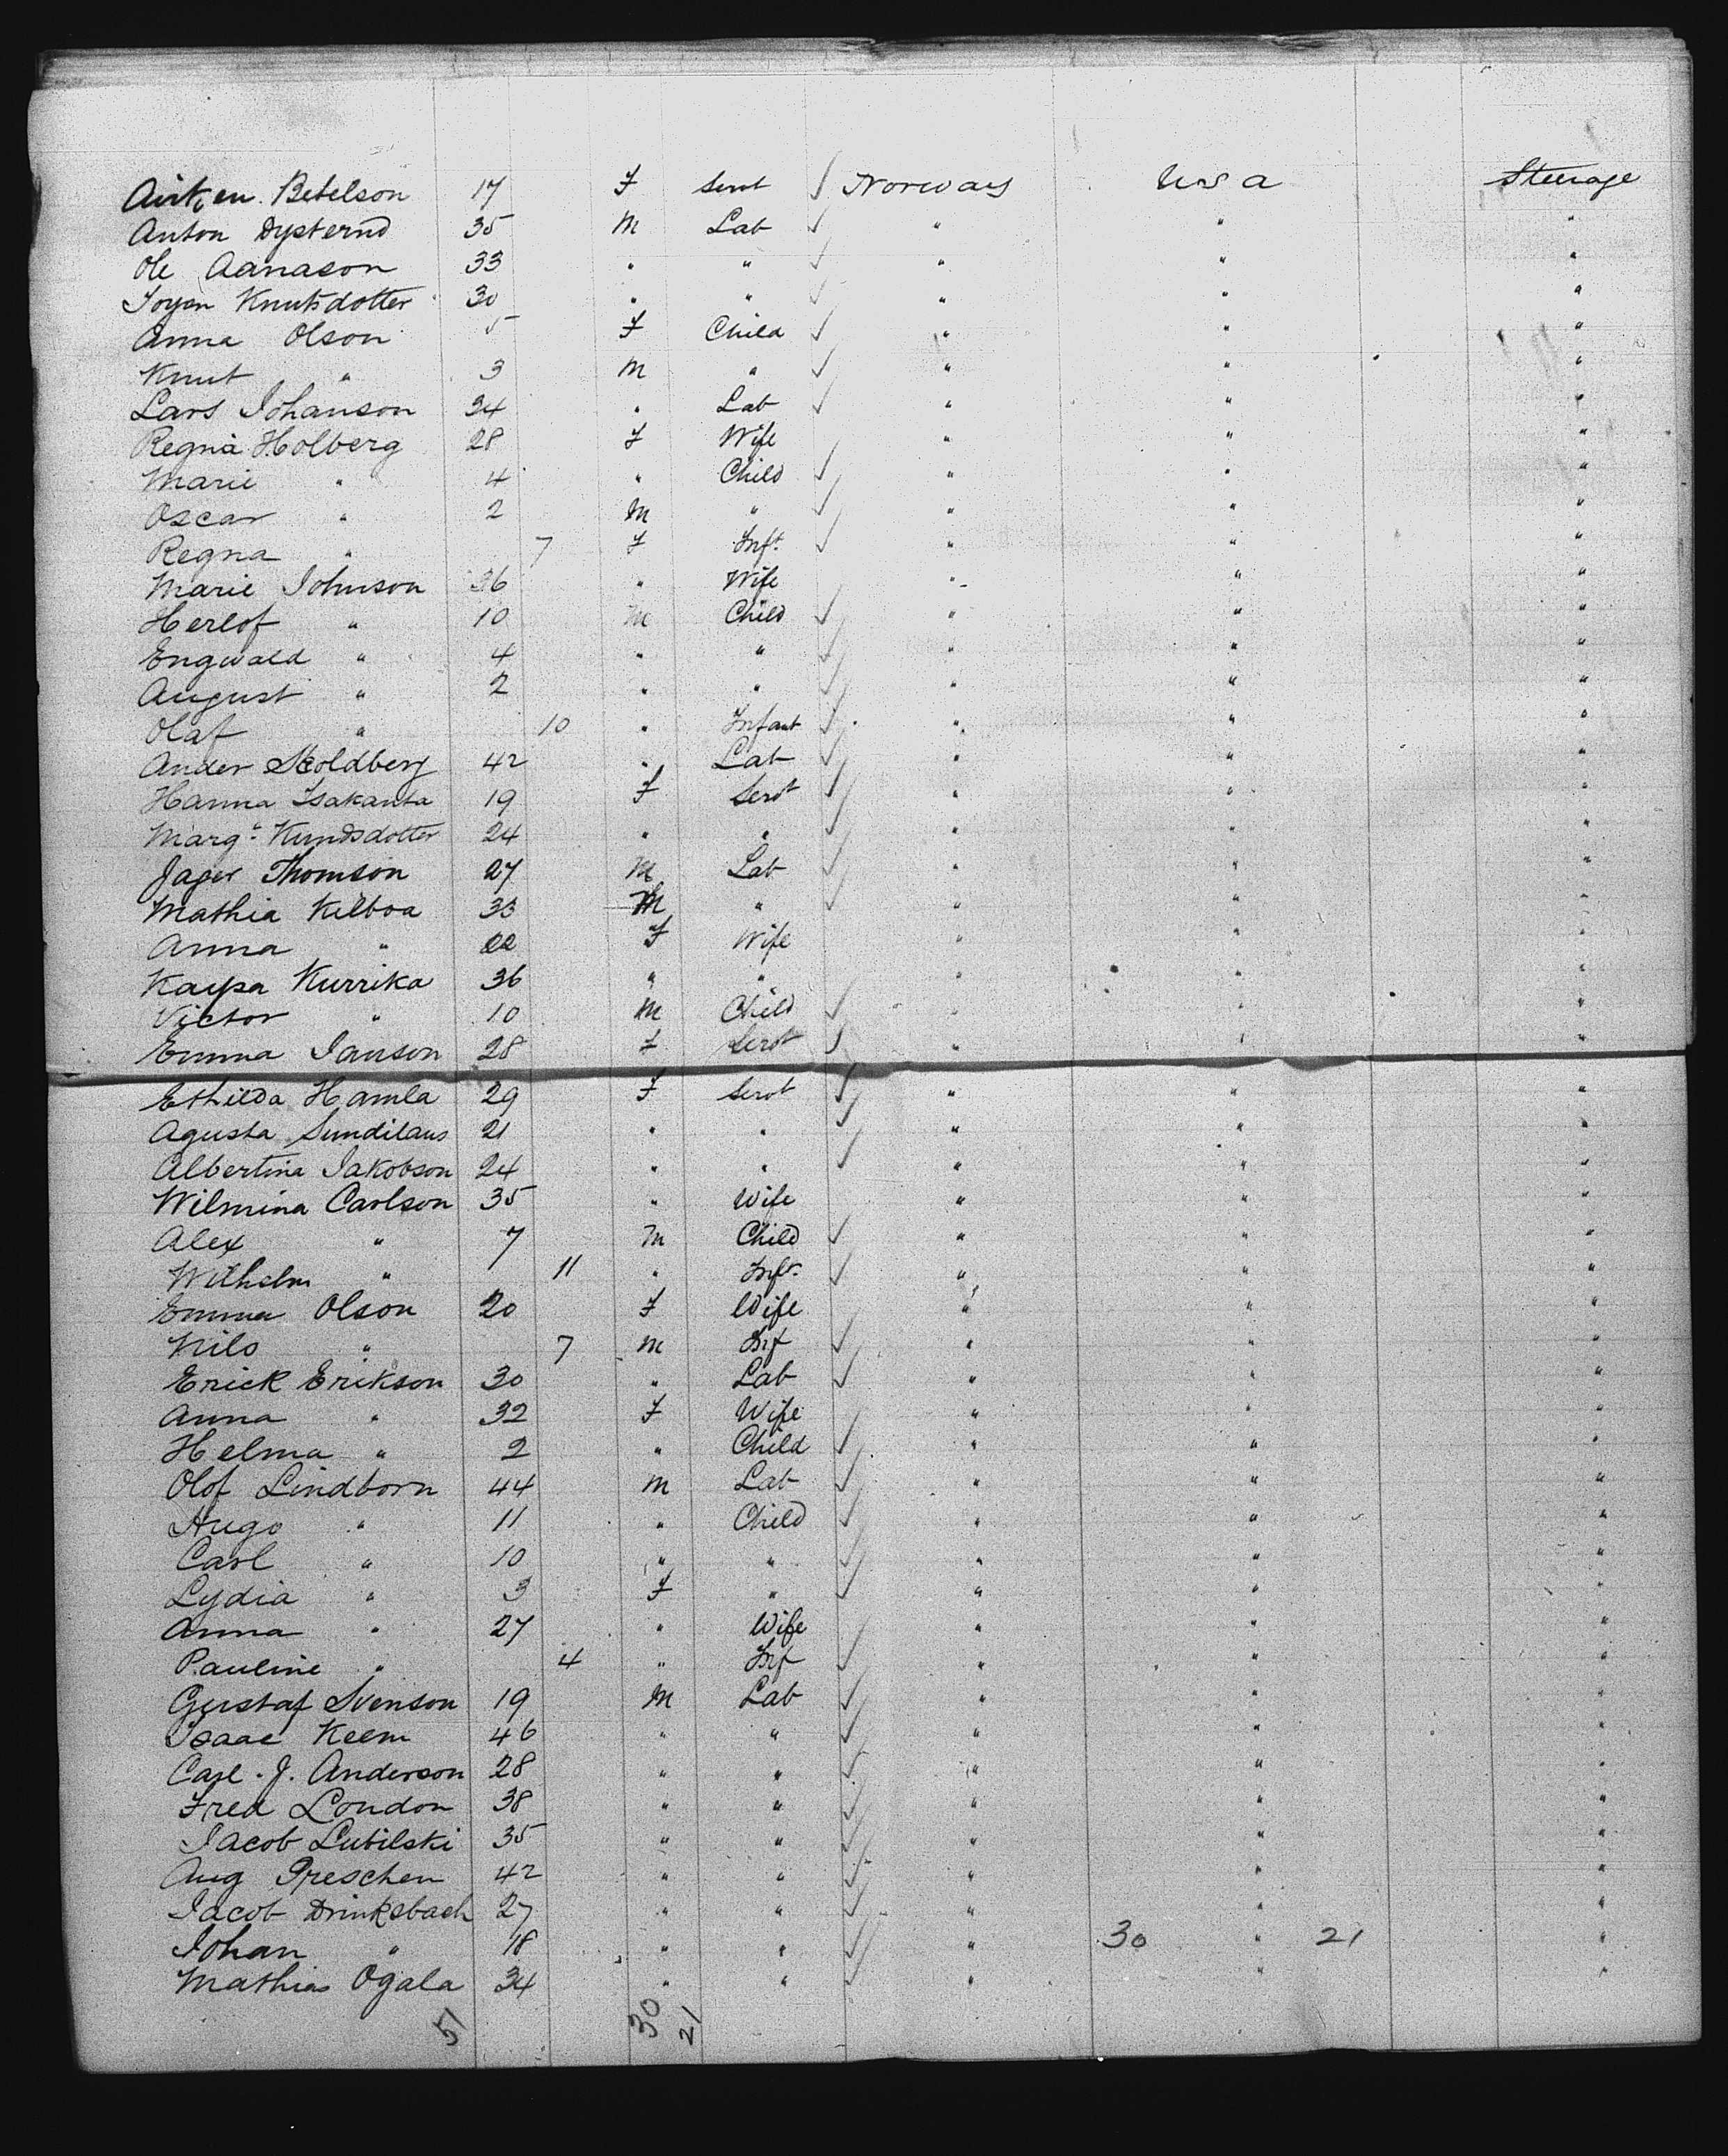 Airt,en. Betelson 17 F Servt ✓ Norway U S a Steerage
Anton Dysternd 35 M Lab ✓ " " "
Ole Aanason 33 " " ✓ " " "
Joyen Knutsdotter 30 " " ✓ " " "
Anna Olson 5 F Child ✓ " " "
Knut " 3 M " ✓ " " "
Lars Johanson 24 " Lab ✓ " " "
Regna Holberg 28 F Wife " " "
Marie " 4 " Child ✓ " " "
Oscar " 2 M " ✓ " " "
Regna " 7 F Inft ✓ " " "
Marie Johnson 36 " Wife " " "
Herlof " 10 M Child ✓ " " "
Engwald " 4 " " ✓ " " "
August " 2 " " ✓ " " "
Olaf " 10 " Infant ✓ " " "
Ander Skoldberg 42 " Lab ✓ " " "
Hanna Isakanta 19 F Servt ✓ " " "
Margt Kundsdotter 24 " " ✓ " " "
Jager Thomson 27 M Lab ✓ " " "
Mathia Kilboa 33 M " ✓ " " "
Anna " 22 F Wife " " "
Kaysa Kurrika 36 " " " " "
Victor " 10 M Child ✓ " " "
Emma Janson 28 F Servt ✓ " " "
Ethilda Hamla 29 F Servt ✓ " " "
Agusta Sundilaus 21 " " ✓ " " "
Albertina Jakobson 24 " " ✓ " " "
Wilmina Carlson 35 " Wife " " "
Alex " 7 M Child ✓ " " "
Wilhelm " 11 " Inft ✓ " " "
Emma Olson 20 F Wife " " "
Nils " 7 M Inf ✓ " " "
Erick Erikson 30 " Lab ✓ " " "
Anna " 32 F Wife " " "
Helma " 2 " Child ✓ " " "
Olof Lindborn 44 M Lab ✓ " " "
Hugo " 11 " Child ✓ " " "
Carl " 10 " " ✓ " " "
Lydia " 3 F " ✓ " " "
Anna " 27 " Wife " " "
Pauline " 4 " Inf ✓ " " "
Gustaf Svenson 19 M Lab ✓ " " "
Isaac Keem 46 " " ✓ " " "
Carl . J. Anderson 28 " " ✓ " " "
Fred London 38 " " ✓ " " "
Jacob Lubilski 35 " " ✓ " " "
Aug Preschen 42 " " ✓ " " "
Jacob Drinksbach 27 " " ✓ " " "
Johan " 18 " " ✓ " 30 " 21 "
Mathias Ogala 34 " " ✓ " " "
51 30 21